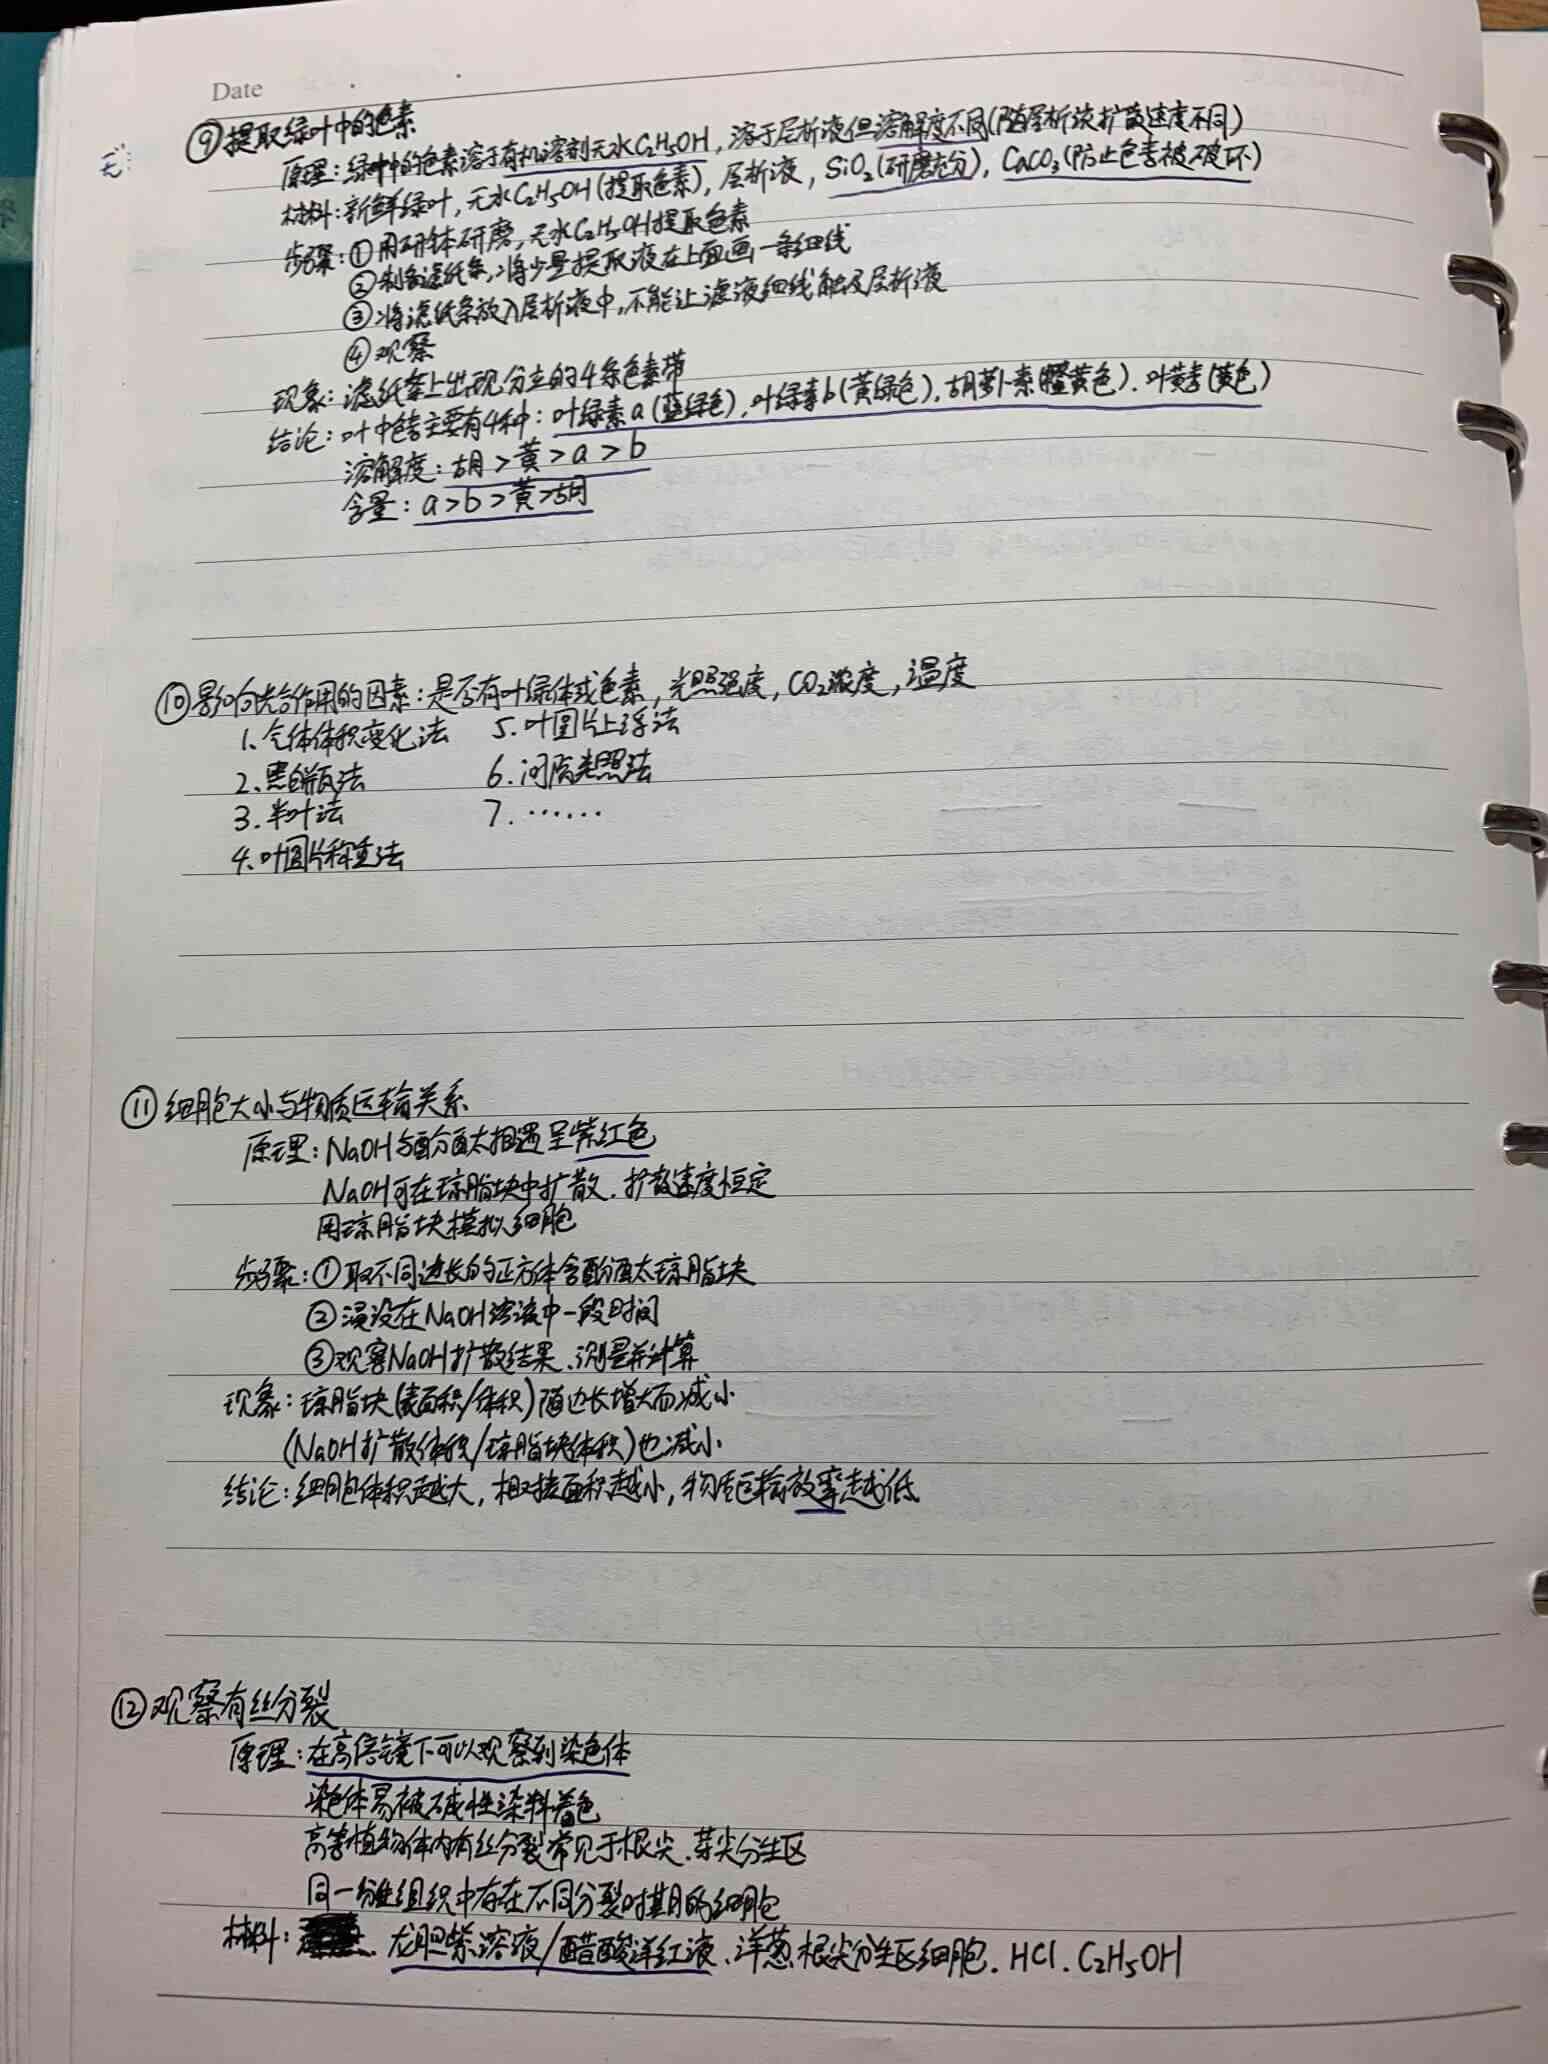 Date
⑨提取绿叶中的色素
原理：绿叶中的色素溶于有机溶剂无水C₂H₅OH，溶于层析液但溶解度不同(随层析液扩散速度不同)
材料：新鲜绿叶，无水C₂H₅OH(提取色素)，层析液，SiO₂(研磨充分)，CaCO₃(防止色素被破坏)
步骤：①用研钵研磨，无水C₂H₅OH提取色素
②制备滤纸条，将少量提取液在上面画一条细线
③将滤纸条放入层析液中，不能让滤液细线触及层析液
④观察
现象：滤纸条上出现分立的4条色素带
结论：叶中色素主要有4种：叶绿素a(蓝绿色)，叶绿素b(黄绿色)，胡萝卜素(橙黄色)．叶黄素(黄色)
溶解度：胡>黄>a>b
含量：a>b>黄>胡
⑩影响光合作用的因素：是否有叶绿体或色素，光照强度，CO₂浓度，温度
1、气体体积变化法 5．叶圆片上浮法
2、黑白瓶法 6．间隔光照法
3．半叶法 7．……
4、叶圆片称重法
⑪细胞大小与物质运输关系
原理：NaOH与酚酞相遇呈紫红色
NaOH可在琼脂块中扩散．扩散速度恒定
用琼脂块模拟细胞
步骤：①取不同边长的正方体含酚酞琼脂块
②浸没在NaOH溶液中一段时间
③观察NaOH扩散结果、测量并计算
现象：琼脂块(表面积/体积)随边长增大而减小
(NaOH扩散体积/琼脂块体积)也减小
结论：细胞体积越大，相对表面积越小，物质运输效率越低
⑫观察有丝分裂
原理：在高倍镜下可以观察到染色体
染色体易被碱性染料着色
高等植物体内有丝分裂常见于根尖、芽尖分生区
同一分生组织中存在不同分裂时期的细胞
材料：、龙胆紫溶液/醋酸洋红液、洋葱根尖分生区细胞．HCl．C₂H₅OH